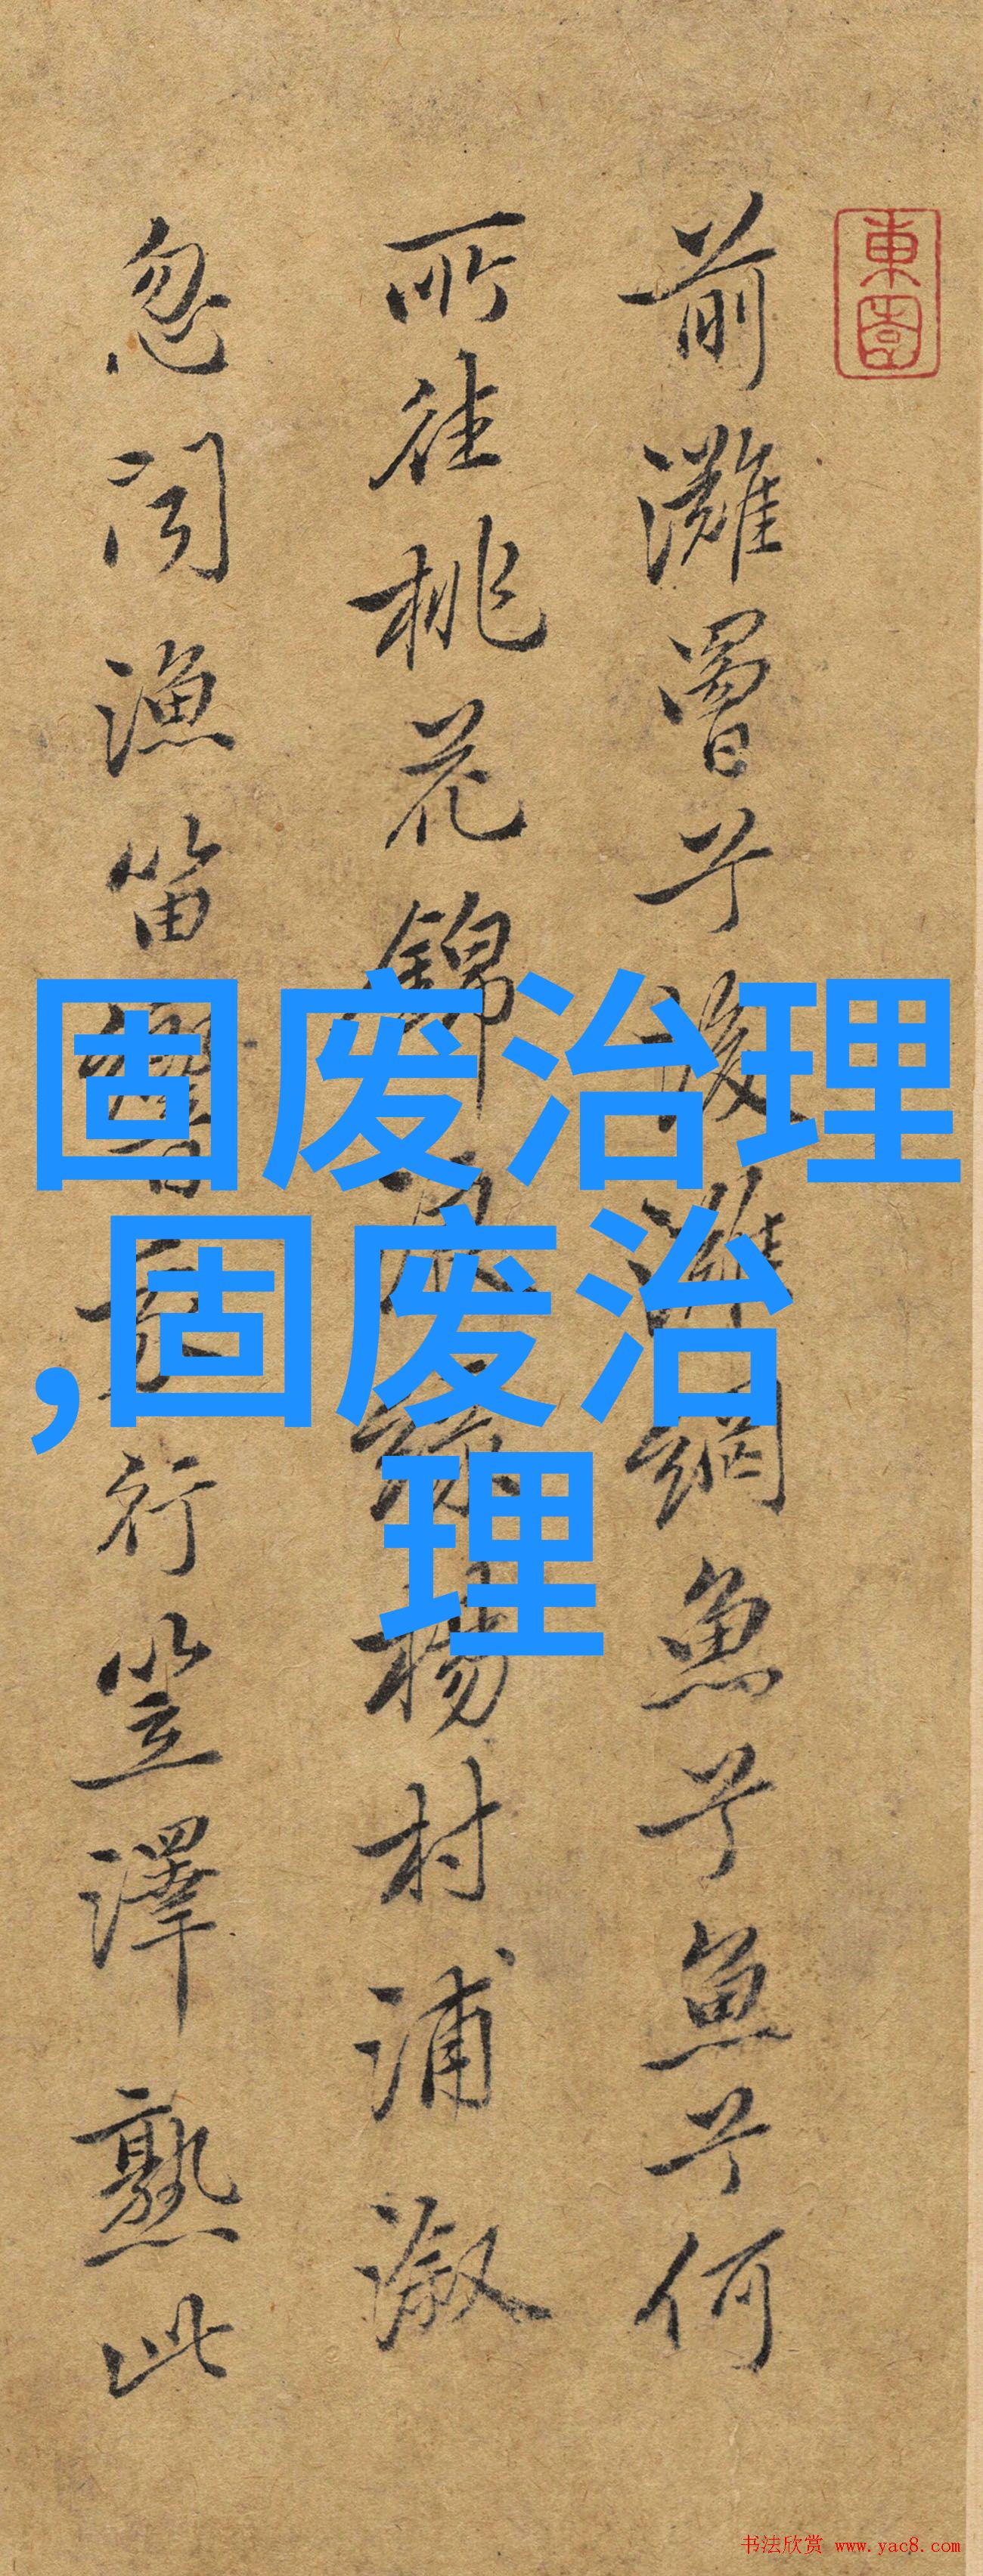 東圖
前灘罾兮後灘網魚兮魚兮何
所往桃花錦浪綠楊村浦溆
忽聞漁笛響行笠澤熟此
固废治理
,固废治
理
书法欣赏 www.yac8.com